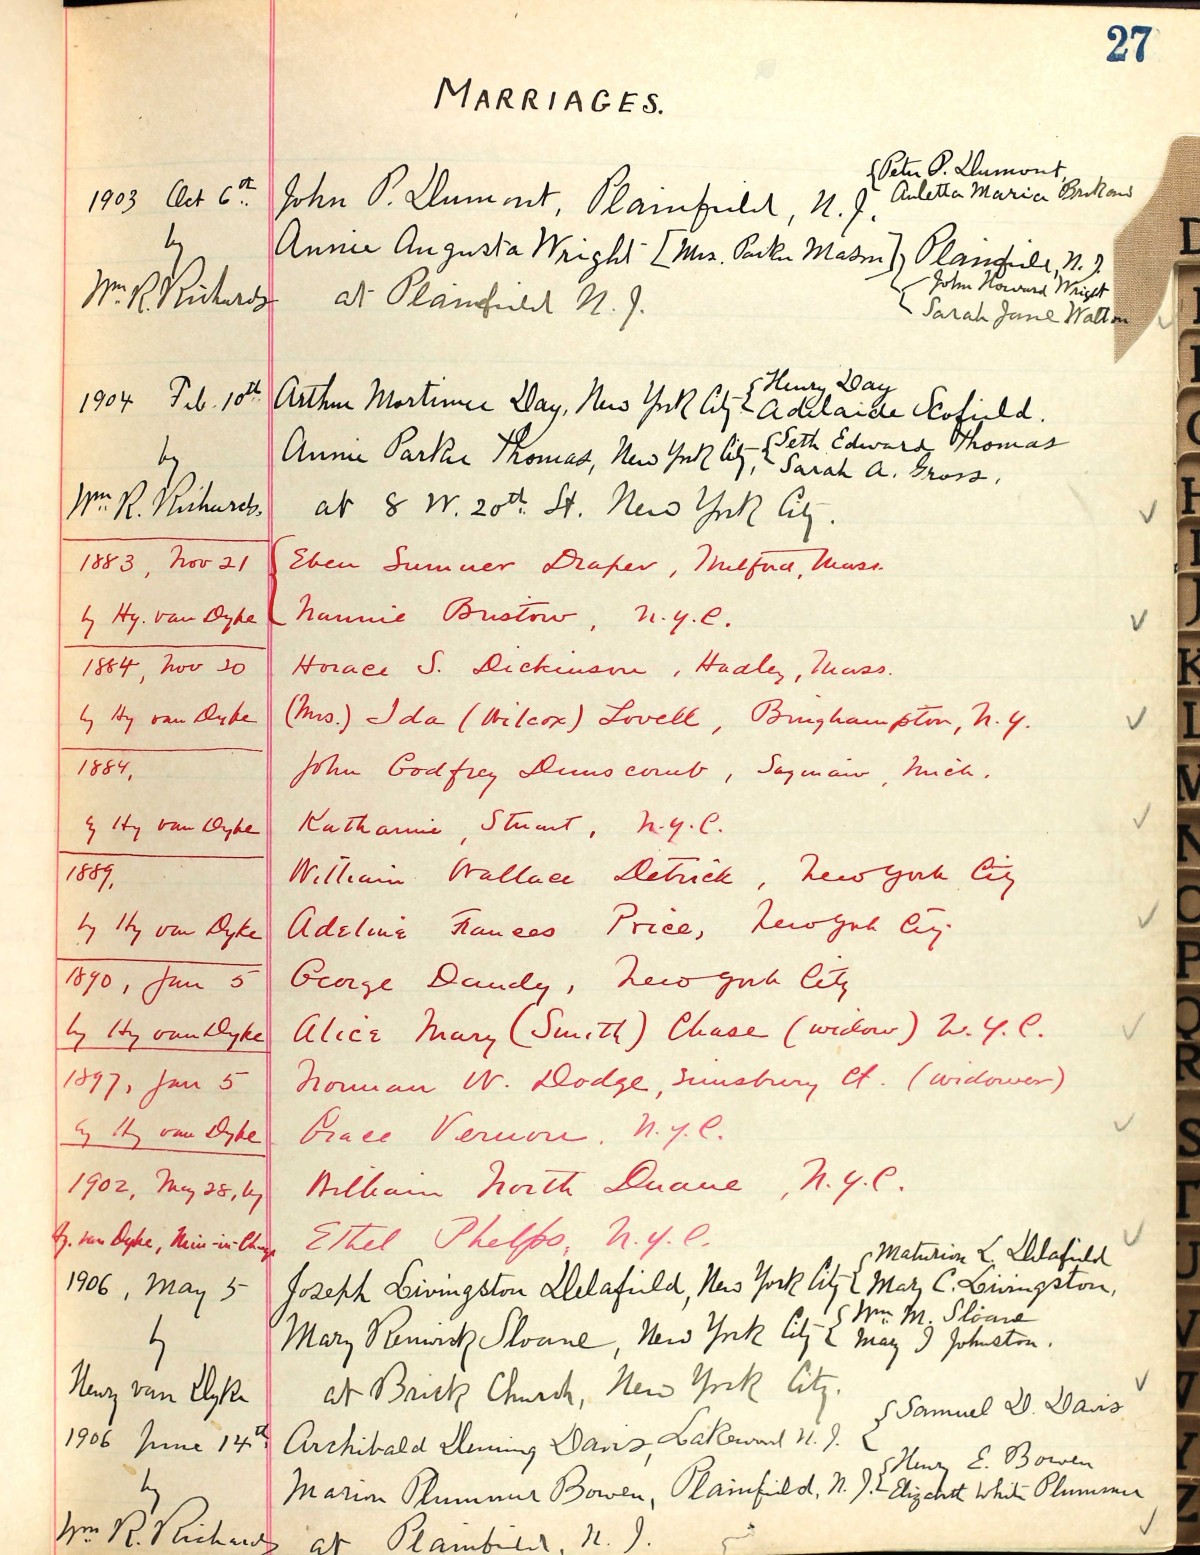 27
MARRIAGES.
{Peter P. Dumont,
1903 Oct 6th. John P. Dumont, Plainfield, N. J. Auletta Maria
by Annie Augusta Wright [Mrs. Parker Mason], Plainfield, N. J.
{John Howard Wright
Wm. R. Richards at Plainfield N. J. Sarah Jane Walton
1904 Feb. 10th Arthur Mortimer Day, New York City {Henry Day
Adelaide Scofield.
by Annie Parker Thomas, New York City, {Seth Edward Thomas
Sarah A. Gross.
Wm. R. Richards. at 8 W. 20th. St. New York City.
1883, Nov 21 {Eben Sumner Draper, Milford, Mass.
by Hy. van Dyke Nannie Bristow, N.Y.C.
1884, Nov 20 Horace S. Dickinson, Hadley, Mass.
by Hy van Dyke (Mrs.) Ida (Wilcox) Lovell, Binghampton, N.Y.
1884, John Godfrey Dunscomb, Saginaw, Mich.
by Hy van Dyke Katharine Stuart, N.Y.C.
1889, William Wallace Detrick, New York City
by Hy van Dyke Adeline Frances Price, New York City
1890, Jan 5 George Dandy, New York City
by Hy van Dyke Alice Mary (Smith) Chase (widow) N.Y.C.
1897, Jan 5 Norman W. Dodge, Simsbury Ct. (widower)
by Hy van Dyke Grace Vernon, N.Y.C.
1902, May 28, by William North Duane, N.Y.C.
Hy. van Dyke, Min-in-Charge Ethel Phelps, N.Y.C.
{Maturin L. Delafield
1906, May 5 Joseph Livingston Delafield, New York City Mary C. Livingston,
{Wm. M. Sloane
by Mary Renwick Sloane, New York City May J Johnston.
Henry van Dyke at Brick Church, New York City.
{Samuel D. Davis
1906 June 14th Archibald Deming Davis, Lakewood N. J.
{Henry E. Bowen
by Marion Plummer Bowen, Plainfield, N. J. Elizabeth White Plummer
Wm R. Richards at Plainfield, N. J.